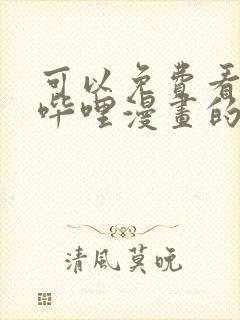 可以免費看
哔哩漫畫的
清風莫晚